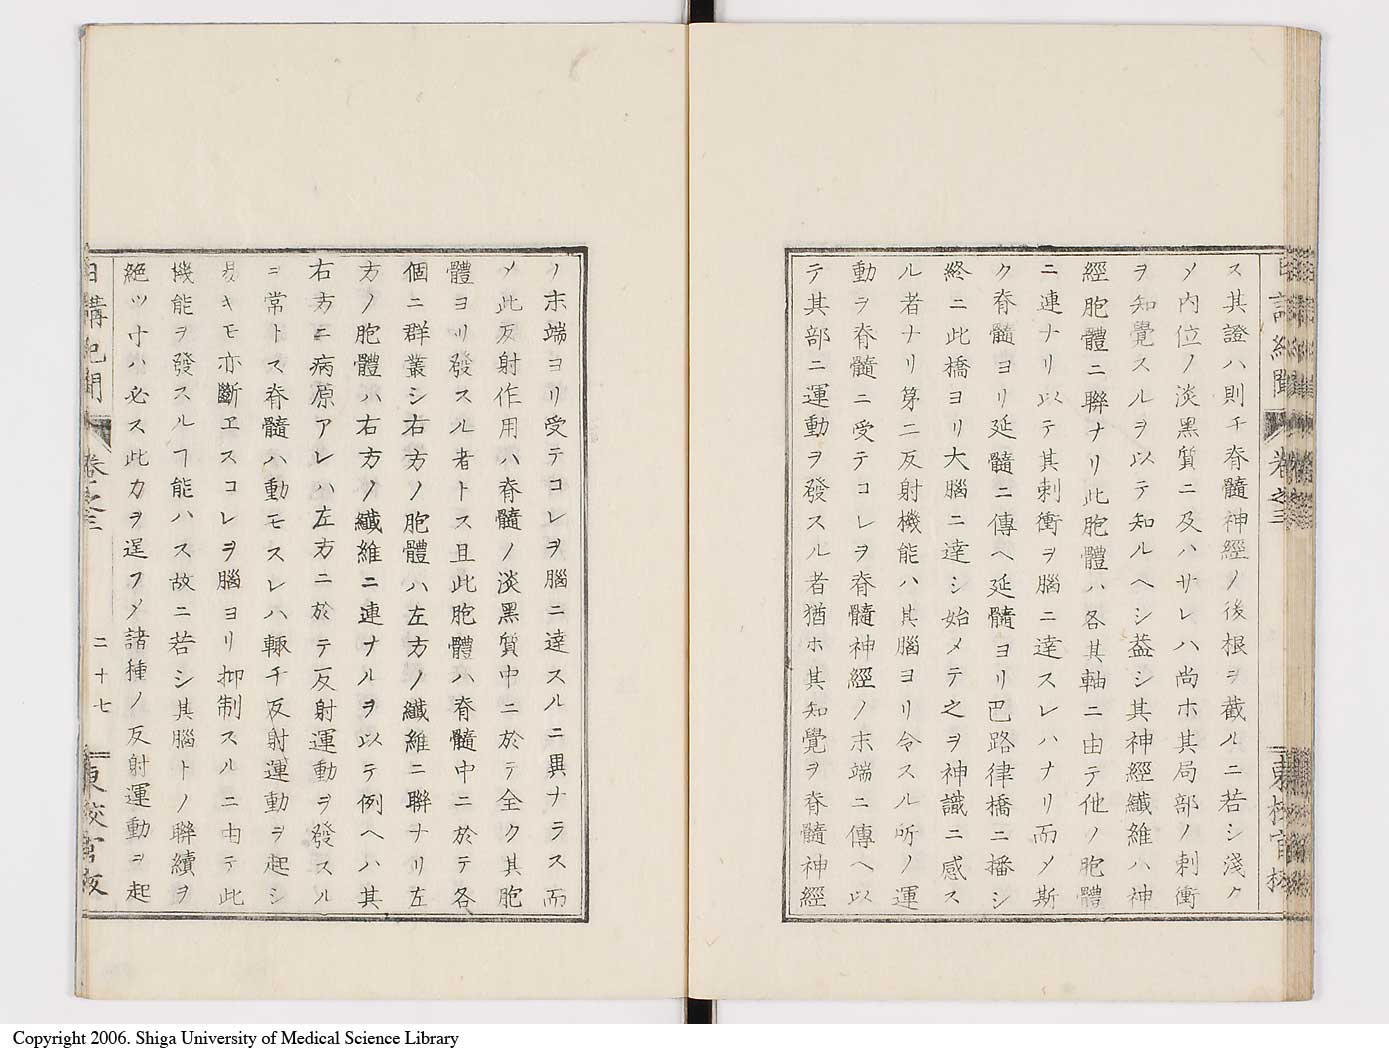 日講紀聞 卷之三
ス其證ハ則チ脊髓神經ノ後根ヲ截ルニ若シ淺ク
メ内位ノ淡黑質ニ及ハサレハ尚ホ其局部ノ刺衝
ヲ知覺スルヲ以テ知ルヘシ蓋シ其神經纖維ハ神
經胞體ニ聯ナリ此胞體ハ各其軸ニ由テ他ノ胞體
ニ連ナリ以テ其刺衝ヲ腦ニ達スレハナリ而メ斯
ク脊髓ヨリ延髓ニ傳ヘ延髓ヨリ巴路律橋ニ播シ
終ニ此橋ヨリ大腦ニ達シ始メテ之ヲ神識ニ感ス
ル者ナリ第二反射機能ハ其腦ヨリ令スル所ノ運
動ヲ脊髓ニ受テコレヲ脊髓神經ノ末端ニ傳ヘ以
テ其部ニ運動ヲ發スル者猶ホ其知覺ヲ脊髓神經
ノ末端ヨリ受テコレヲ腦ニ達スルニ異ナラス而
メ此反射作用ハ脊髓ノ淡黑質中ニ於テ全ク其胞
體ヨリ發スル者トス且此胞體ハ脊髓中ニ於テ各
個ニ群叢シ右方ノ胞體ハ左方ノ纖維ニ聯ナリ左
方ノ胞體ハ右方ノ纖維ニ連ナルヲ以テ例ヘハ其
右方ニ病原アレハ左方ニ於テ反射運動ヲ發スル
ヿ常トス脊髓ハ動モスレハ輙チ反射運動ヲ起シ
易キモ亦斷ヱスコレヲ腦ヨリ抑制スルニ由テ此
機能ヲ發スルヿ能ハス故ニ若シ其腦トノ聯續ヲ
絶ツ寸ハ必ス此力ヲ逞フメ諸種ノ反射運動ヲ起
日講紀聞 卷之三 二十七